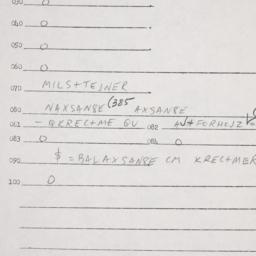 030 0
040 0
050 0
060 0
070 MILS+TEJNER
080 NAXSANBE (385 AXSANBE
081 - QKREC+ME GU 082 FORHOJZ
083 0 084 0
090 $ = BALAXSANBE CM KREC+MER
100 0